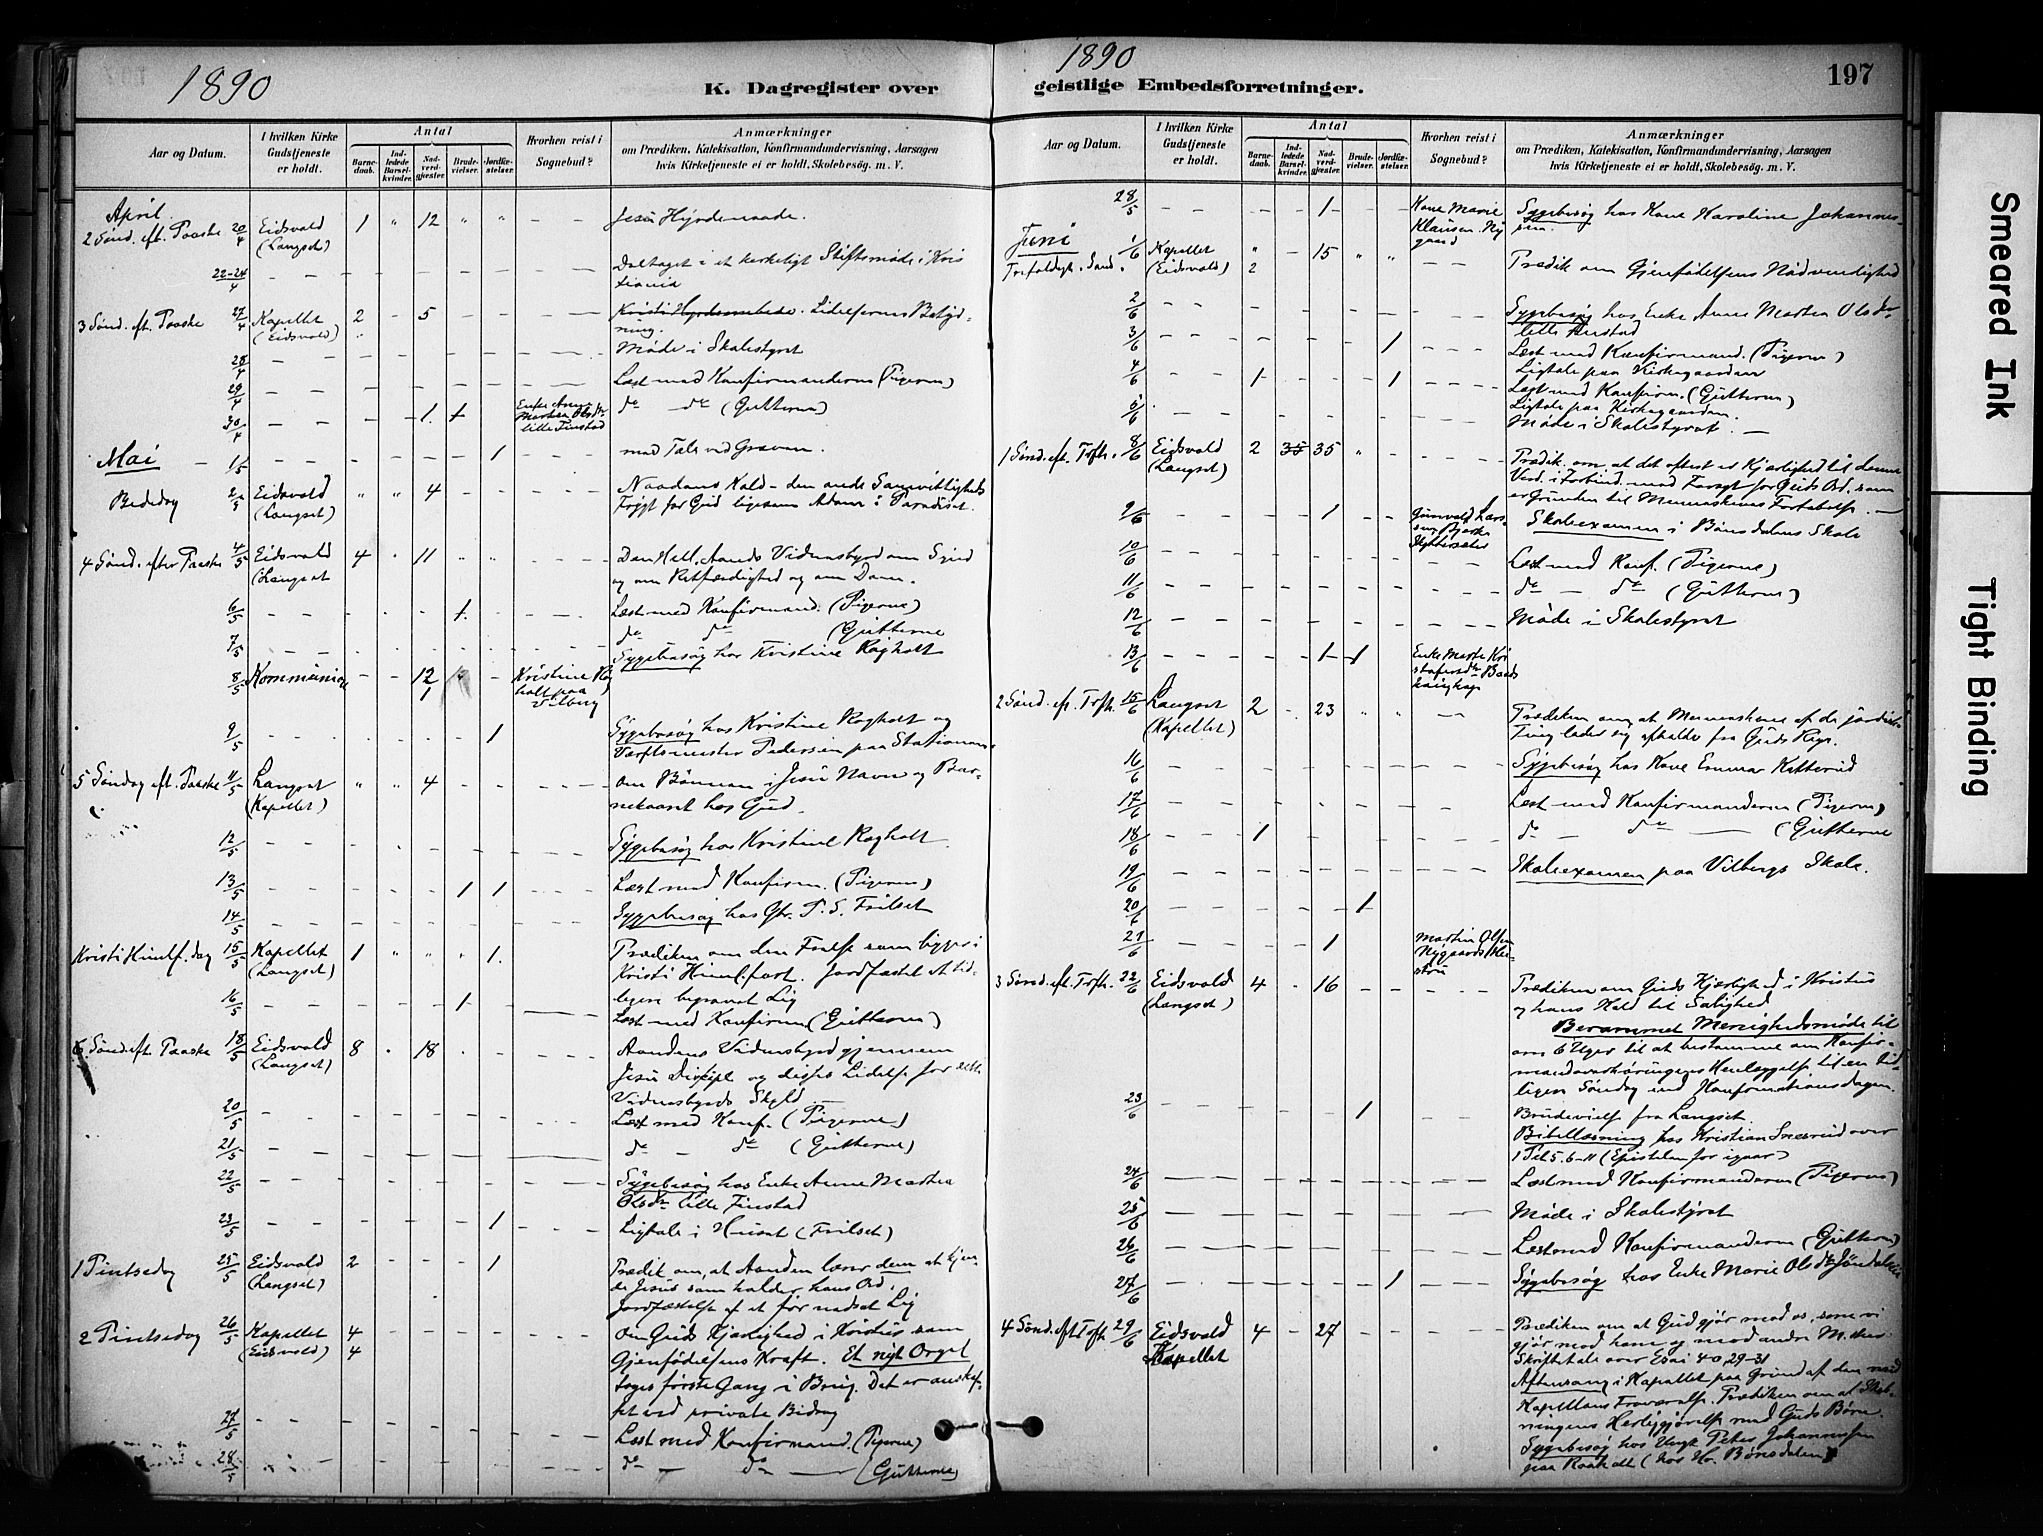 1890
K. Dagregister over
Aar og Datum.
I hvilken Kirke Gudstjeneste er holdt.
Antal
Barnedaab.
Indledede Barselkvinder.
Nadverdgjæster.
Brudevielser.
Jordfæstelser.
Hvorhen reist i Sognebud?
Anmærkninger
om Prædiken, Katekisation, Konfirmandundervisning, Aarsagen
hvis Kirketjeneste ei er holdt, Skolebesøg. m. V.
April
2 Sønd. eft. Paaske 20/4 Eidsvold 1 " 12 " " - -
(Langset)
22-24/4 Deltaget i et kirkeligt Stiftsmøde i Kris
tiania
3 Sønd. eft. Paaske 27/4 Kapellet 2 - 5 - Lidelsernes Betyd-
(Eidsvold) ning.
Møde i Skolestyret
28/4
29/4 Læst med Konfirmanderne (Pigerne)
30/4 1. 1 Enke Anne Marthea Olsdtr lille Finstad do do (Gutterne)
Mai 1/5 1 med Tale ved Graven.
Bededag 2/5 Eidsvold " " 4 Naadens Kald - den onde Samvittigheds
(Langset) Frygt for Gud ligesom Adam i Paradiset.
4 Sønd. efter Paaske 4/5 Eidsvold 4 " 11 Den Hell. Aands Vidnesbyrd om Synd
(Langset og om Retfærdighed og om Dom.
6/5 1. Læst med Konfirmand. (Pigerne)
7/5 do do (Gutterne
Sygebesøg hos Kristine Rogholt
8/5 Kommunion 12 Kristine Ro
1 holt paa Vilberg
9/5 1 Sygebesøg hos Kristine Rogholt og
Værftsmester Pedersen paa Stationen
5 Søndag eft. Paaske 11/5 Langset " " 4 om Bønnen i Jesu Navn og Bar-
(Kapellet) nekaaret hos Gud.
12/5 Sygebesøg hos Kristine Rogholt
13/5 1 1 Læst med Konfirm. (Pigerne)
14/5 Sygebesøg hos P. S. Frilset
Kristi Himlf. dag 15/5 Kapellet 1 " " " 1. Prædiken om den Frelse som ligger i
(Langset) Kristi Himlfart. Jordfæstet et tid-
16/5 1 ligere begravet Lig
Læst med Konfirm (Gutterne)
6. Sønd eft. Paaske 18/5 Eidsvold 8 " 18 Aandens Vidnesbyrd gjennem
(Langset) Jesu Disciple og disses Lidelse for dette
Vidnesbyrds Skyld.
20/5 Læst med Konf. (Pigerne)
21/5 do - do (Gutterne)
22/5 Sygebesøg hos Enke Anne Marthea
Olsdtr lille Finstad
23/5 1 Ligtale i Huset (Frilset)
1 Pintsedag 25/5 Eidsvold 2 1 Prædik om, at Aanden lærer dem at kjen
(Langset) de Jesus som holder hans Ord.
Jordfæstelse af et før nedsat Lig
2 Pintsedag 26/5 Kapellet 4 Om Guds Kjærlighed i Kristus som
(Eidsvold) 4 Gjenfødelsens Kraft. Et nyt Orgel
toges første Gang i Brug. Det er anskaf-
fet ved private Bidrag
27/5 Læst med Konfirmand. (Pigerne)
28/5 do - do (Gutterne)
1890
geistlige Embedsforretninger.
197
Aar og Datum.
I hvilken Kirke Gudstjeneste er holdt.
Antal
Barnedaab.
Indledede Barselkvinder.
Nadverdgjæster.
Brudevielser.
Jordfæstelser.
Hvorhen reist i Sognebud?
Anmærkninger
om Prædiken, Katekisation, Konfirmandundervisning, Aarsagen
hvis Kirketjeneste ei er holdt, Skolebesøg. m. V.
28/5 1 Kone Marie Klausen Nygaard Sygebesøg hos Kone Karoline Johannes
sen.
Juni 1/6 Kapellet " - 15 " "
Trefoldigh. Sønd. (Eidsvold) 2 Prædik om Gjenfødelsens Nødvendighed
2/6 Sygebesøg hos Enke Anne Marthea Olsdtr
lille Finstad
3/6 1 Læst med Konfirmand. (Pigerne)
Ligtale paa Kirkegaarden
4/6 1 1 Læst med Konfirm. (Gutterne)
Ligtale paa Kirkegaarden.
5/6 Møde i Skolestyret.
1 Sønd. eft. Trfh. 8/6 Eidsvold 2 35 35 " Prædik. om, at det oftest er Kjærlighed til denne
(Langset) Verd. i Forbind. med Foragt for Guds Ord, som
er Grunden til Menneskenes Fortabelse.
9/6 1 Gunvald Lars
sen Skoleexamen i Bønsdalens Skole
10/6 Læst med Konf. (Pigerne)
11/6 do - do (Gutterne)
12/6 Møde i Skolestyret
13/6 1 1 Enke Marthe Kri
stofersdtr
2 Sønd. eft. Trfh. 15/6 Langset 2 - 23 " " Prædiken om, at Menneskene af de jordiske
(Kapellet) Ting lader sig afholde fra Guds Rige.
16/6 Sygebesøg hos Kone Emma Ketterud
17/6 Læst med Konfirmanderne (Pigerne)
18/6 1 do - do (Gutterne
19/6 Skoleexamen paa Vilbergs Skole.
20/6 1
21/6 1 Martin Olsen
3 Sønd. eft. Trfh. 22/6 Eidsvold 4 - 16 Prædiken om Guds Kjærlighed i Kristus
(Langset) og hans Kald til Salighed
Berammet Menighedsmøde til
om 6 Uger til at bestemme om Konfir-
mandoverhøringens Henlæggelse til en tid-
ligere Søndag end Konfirmationsdagen.
23/6 1 Brudevielse fra Langset.
Bibellæsning hos Kristian Snesrud over
1 Pet 5. 6-11 (Epistelen for igaar)
24/6 Læst med Konfirmanderne (Pigerne)
25/6 Møde i Skolestyret
26/6 Læst med Konfirmanderne (Gutterne)
27/6 1 Sygebesøg hos Enke Marie Olsdtr
4 Sønd. eft Trfh 29/6 Eidsvold 4 - 27 Prædiken om at Gud gjør med os, som vi
Kapellet gjør med ham og med andre
Skriftetale over Esai 40, 29-31
Aftensang i Kapellet paa Grund af den
Kapellans Fraværelse. Prædiken om at Skab-
ningens Herliggjørelse med Guds Børn.
Sygebesøg hos Peter Johannessen
paa Raaholt (hos Bønsdalen)
Smeared Ink
Tight Binding